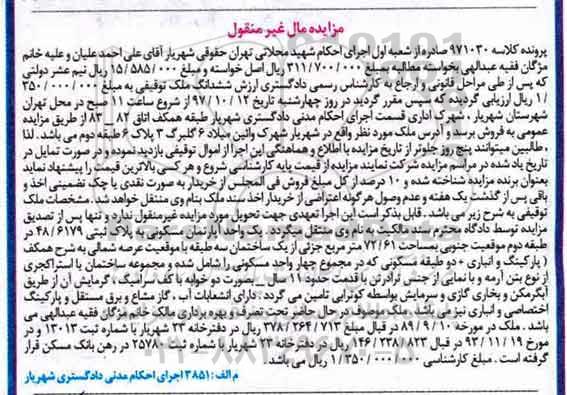 مزایده مال غیر منقول
پرونده کلاسه ۹۷۱۰۳۰ صادره از شعبه اول اجرای احکام شهید محلاتی تهران حقوقی شهریار آقای علی احمد علیان و علیه خانم
مژگان فقیه عبدالهی بخواسته مطالبه مبلغ ۳۱۱/۷۰۰/۰۰۰ ریال اصل خواسته و مبلغ ۱۵/۵۸۵/۰۰۰ ریال نیم عشر دولتی
که پس از طی مراحل قانونی و ارجاع به کارشناس رسمی دادگستری ارزش ششدانگ ملک توقیفی به مبلغ ۳۵۰/۰۰۰/
/۱ ریال ارزیابی گردیده که سپس مقرر گردید در روز چهارشنبه تاریخ ۹۷/۱۰/۱۲ از شروع ساعت ۱۱ صبح در محل تهران
شهرستان شهریار ، شهرک اداری قسمت اجرای احکام مدنی دادگستری شهریار طبقه همکف اتاق ۸۲ _ ۸۳ از طریق مزایده
عمومی به فروش برسد و آدرس ملک مورد نظر واقع در شهریار شهرک وائین میلاد ۶ گلبرگ ۳ پلاک ۶ طبقه دوم می باشد . لذا
، طالبین میتوانند پنج روز جلوتر از تاریخ مزایده با اطلاع و هماهنگی این اجرا از اموال توقیفی بازدید نموده و در صورت تمایل در
تاریخ یاد شده در مراسم مزایده شرکت نمایند مزایده از قیمت پایه کارشناسی شروع و هر کسی بالاترین قیمت را پیشنهاد نماید
بعنوان برنده مزایده شناخته شده و ۱۰ درصد از کل مبلغ فروش فی المجلس از خریدار به صورت نقدی یا چک تضمینی اخذ و
باقی پس از گذشت یک هفته و عدم وصول هر گونه اعتراضی از خریدار اخذ سند ملک بنام وی منتقل خواهد شد. مشخصات ملک
توقیفی به شرح زیر می باشد . قابل بذکر است این اجرا تعهدی جهت تحویل مورد مزایده غیرمنقول ندارد و تنها پس از تصدیق
مزایده توسط دادگاه محترم سند مالکیت به نام وی منتقل میگردد . یک واحد آپارتمان مسکونی به پلاک ثبتی ۴۸/۶۱۷۹ در
طبقه دوم موقعیت جنوبی بمساحت ۷۲/۶۱ متر مربع جزئی از یک ساختمان سه طبقه با موقعیت عرصه شمالی به شرح همکف
( پارکینگ و انباری + دو طبقه مسکونی که در مجموع چهار واحد مسکونی را شامل شده و مجموعه ساختمان با استراکچری
از نوع بتن آرمه و با نمایی از جنس تراورتن با قدمت حدود ۱۱ سال _ بصورت دو خوابه با کف سرامیک ، گرمایش آن از طریق
آبگرمکن و بخاری گازی و سرمایش بواسطه کولرآبی تامین می گردد . دارای انشعابات آب ، گاز مشاع و برق مستقل و پارکینگ
اختصاصی و انباری نیز می باشد . ملک موصوف در حال حاضر تحت تصرف و بهره برداری مالک خانم مژگان فقیه عبدالهی می
باشد . ملک در مورخه ۸۹/۹/۱۰ در قبال مبلغ ۳۷۸/۲۶۴/۷۱۳ ریال در دفترخانه ۲۳ شهریار با شماره ثبت ۱۳۰۱۳ و در
مورخ ۹۳/۱۱/۱۹ در قبال ۱۴۶/۲۳۸/۸۲۳ ریال در دفترخانه ۲۳ شهریار با شماره ثبت ۲۵۷۸۰ در رهن بانک مسکن قرار
گرفته است . مبلغ کارشناسی ۱/۳۵۰/۰۰۰/۰۰۰ ریال می باشد.
م الف : ۳۸۵۱ اجرای احکام مدنی دادگستری شهریار